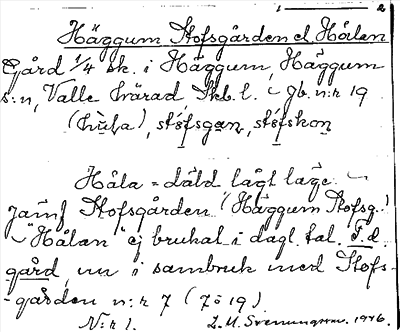 1 — 2
Häggum Stofsgården el. Hålan
Gård 1/4 sk. i Häggum, Häggum
s:n, Valle härad, Skb. l. gb. n:r 19
stòfsgan, stòfskon
Håla = däld lågt läge.
jämf Stofsgården (Häggum Stofsg.)
"Hålan" ej brukat i dagl. tal. F.d.
gård, nu i sambruk med Stofs-
-gården n:r 7 (7 o 19)
N:r 1. L. M. Svenungsson. 1946.